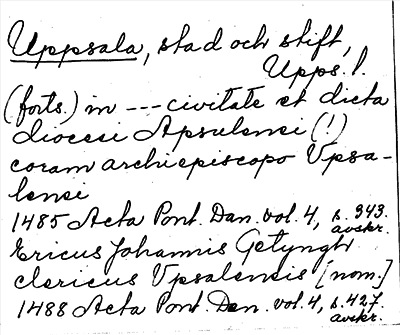 Uppsala, stad och stift,
Upps. l.
(forts.) in --- civitate et dicta
diocesi Apsulensi (!)
coram archiepiscopo Vpsa-
lensi
1485 Acta Pont. Dan. vol. 4, s. 343.
avskr.
Ericus Johannis Getyngh
clericus Vpsalensis [nom.]
1488 Acta Pont. Dan. vol. 4, s. 427.
avskr.